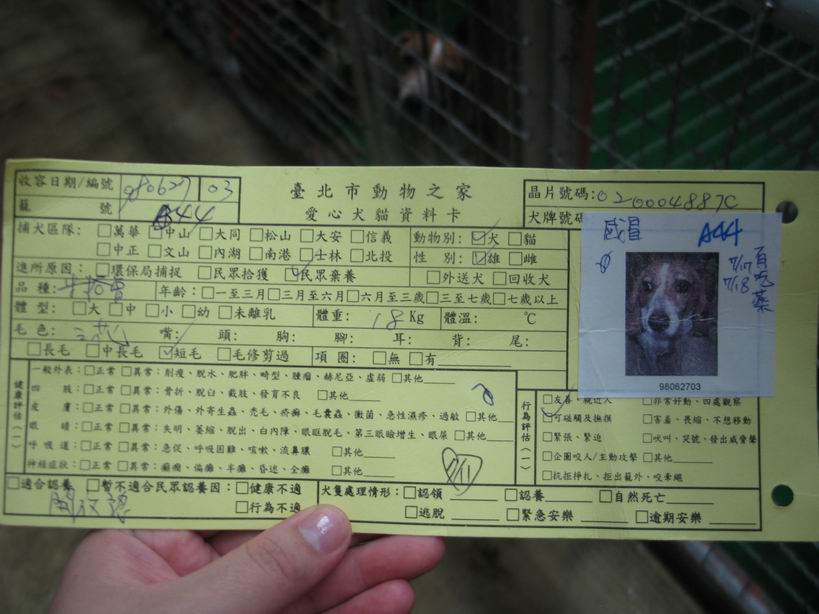 收容日期/編號 980627 03
臺北市動物之家
愛心犬貓資料卡
晶片號碼:020004887C
籠 號 A44
犬牌號碼
捕犬區隊: □萬華 □中山 □大同 □松山 □大安 □信義
□中正 □文山 □內湖 □南港 □士林 □北投
動物別: ☑犬 □貓
性 別: ☑雄 □雌
進所原因: □環保局捕捉 □民眾拾獲 ☑民眾棄養 □外送犬 □回收犬
品種: 米格魯 年齡: □一至三月 □三月至六月 □六月至三歲 □三至七歲 □七歲以上
體 型: □大 □中 □小 □幼 □未離乳 體重: 18 Kg 體溫: ℃
毛 色: 三花 嘴: 頭: 胸: 腳: 耳: 背: 尾:
□長毛 □中長毛 ☑短毛 □毛修剪過 項 圈: □無 □有
健康評估(一)
一般外表: □正常 □異常: 削瘦、脫水、肥胖、畸型、腫瘤、赫尼亞、虛弱 □其他
四 肢: □正常 □異常: 骨折、脫臼、截肢、發育不良 □其他
皮 膚: □正常 □異常: 外傷、外寄生蟲、禿毛、疥癬、毛囊蟲、黴菌、急性濕疹、過敏 □其他
眼 睛: □正常 □異常: 失明、萎縮、脫出、白內障、眼眶脫毛、第三眼瞼增生、眼屎 □其他
呼吸道: □正常 □異常: 急促、呼吸困難、咳嗽、流鼻膿 □其他
神經症狀: □正常 □異常: 癲癇、偏癱、半癱、昏迷、全癱 □其他
7/11
行為評估(一)
□友善、親近人 □非常好動、四處觀察
☑可碰觸及撫摸 □害羞、畏縮、不想移動
□緊張、緊迫 □吠叫、哭號、發出威脅聲
□企圖咬人/主動攻擊 □其他
□抗拒掙扎、拒出籠外、咬牽繩
□適合認養 □暫不適合民眾認養因: □健康不適
□行為不適
犬隻處理情形: □認領 □認養 □自然死亡
□逃脫 □緊急安樂 □逾期安樂
感冒 A44
7/17
7/18
有吃藥
98062703